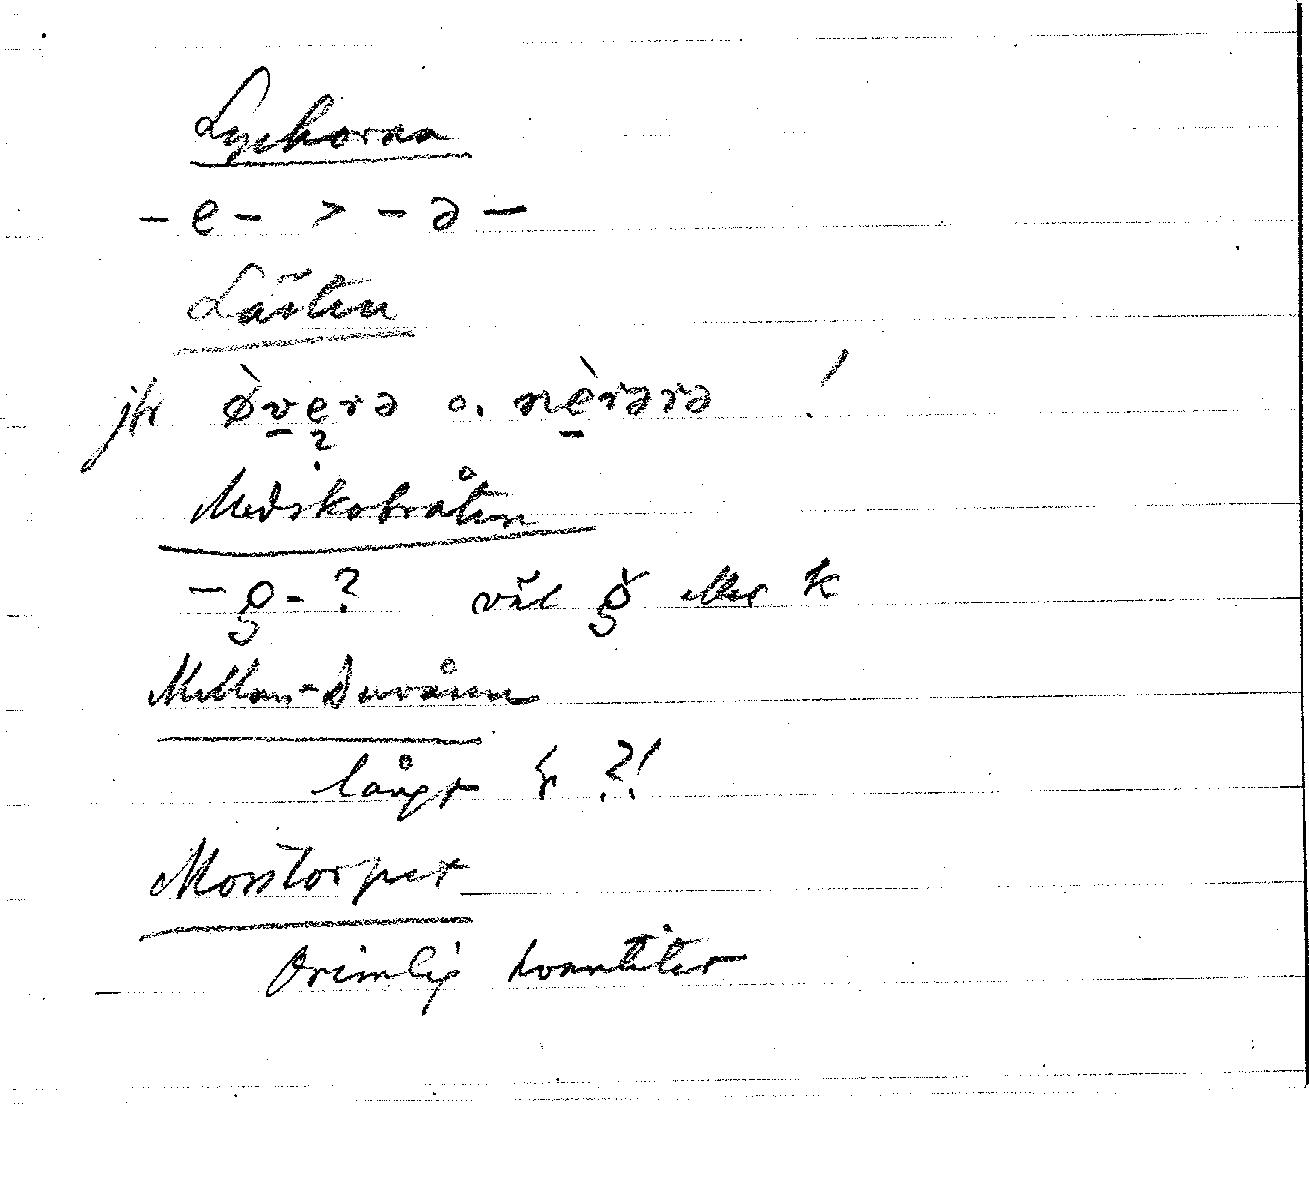 Lyckoran
-e- > -ə-
Lästen
jfr ø̀verə o. nèrərə !
?
Medskobråten
-g- ? väl g̀ eller k
Mellan-Duvåsen
långt ?!
Morstorpet
Orimlig kvantitet